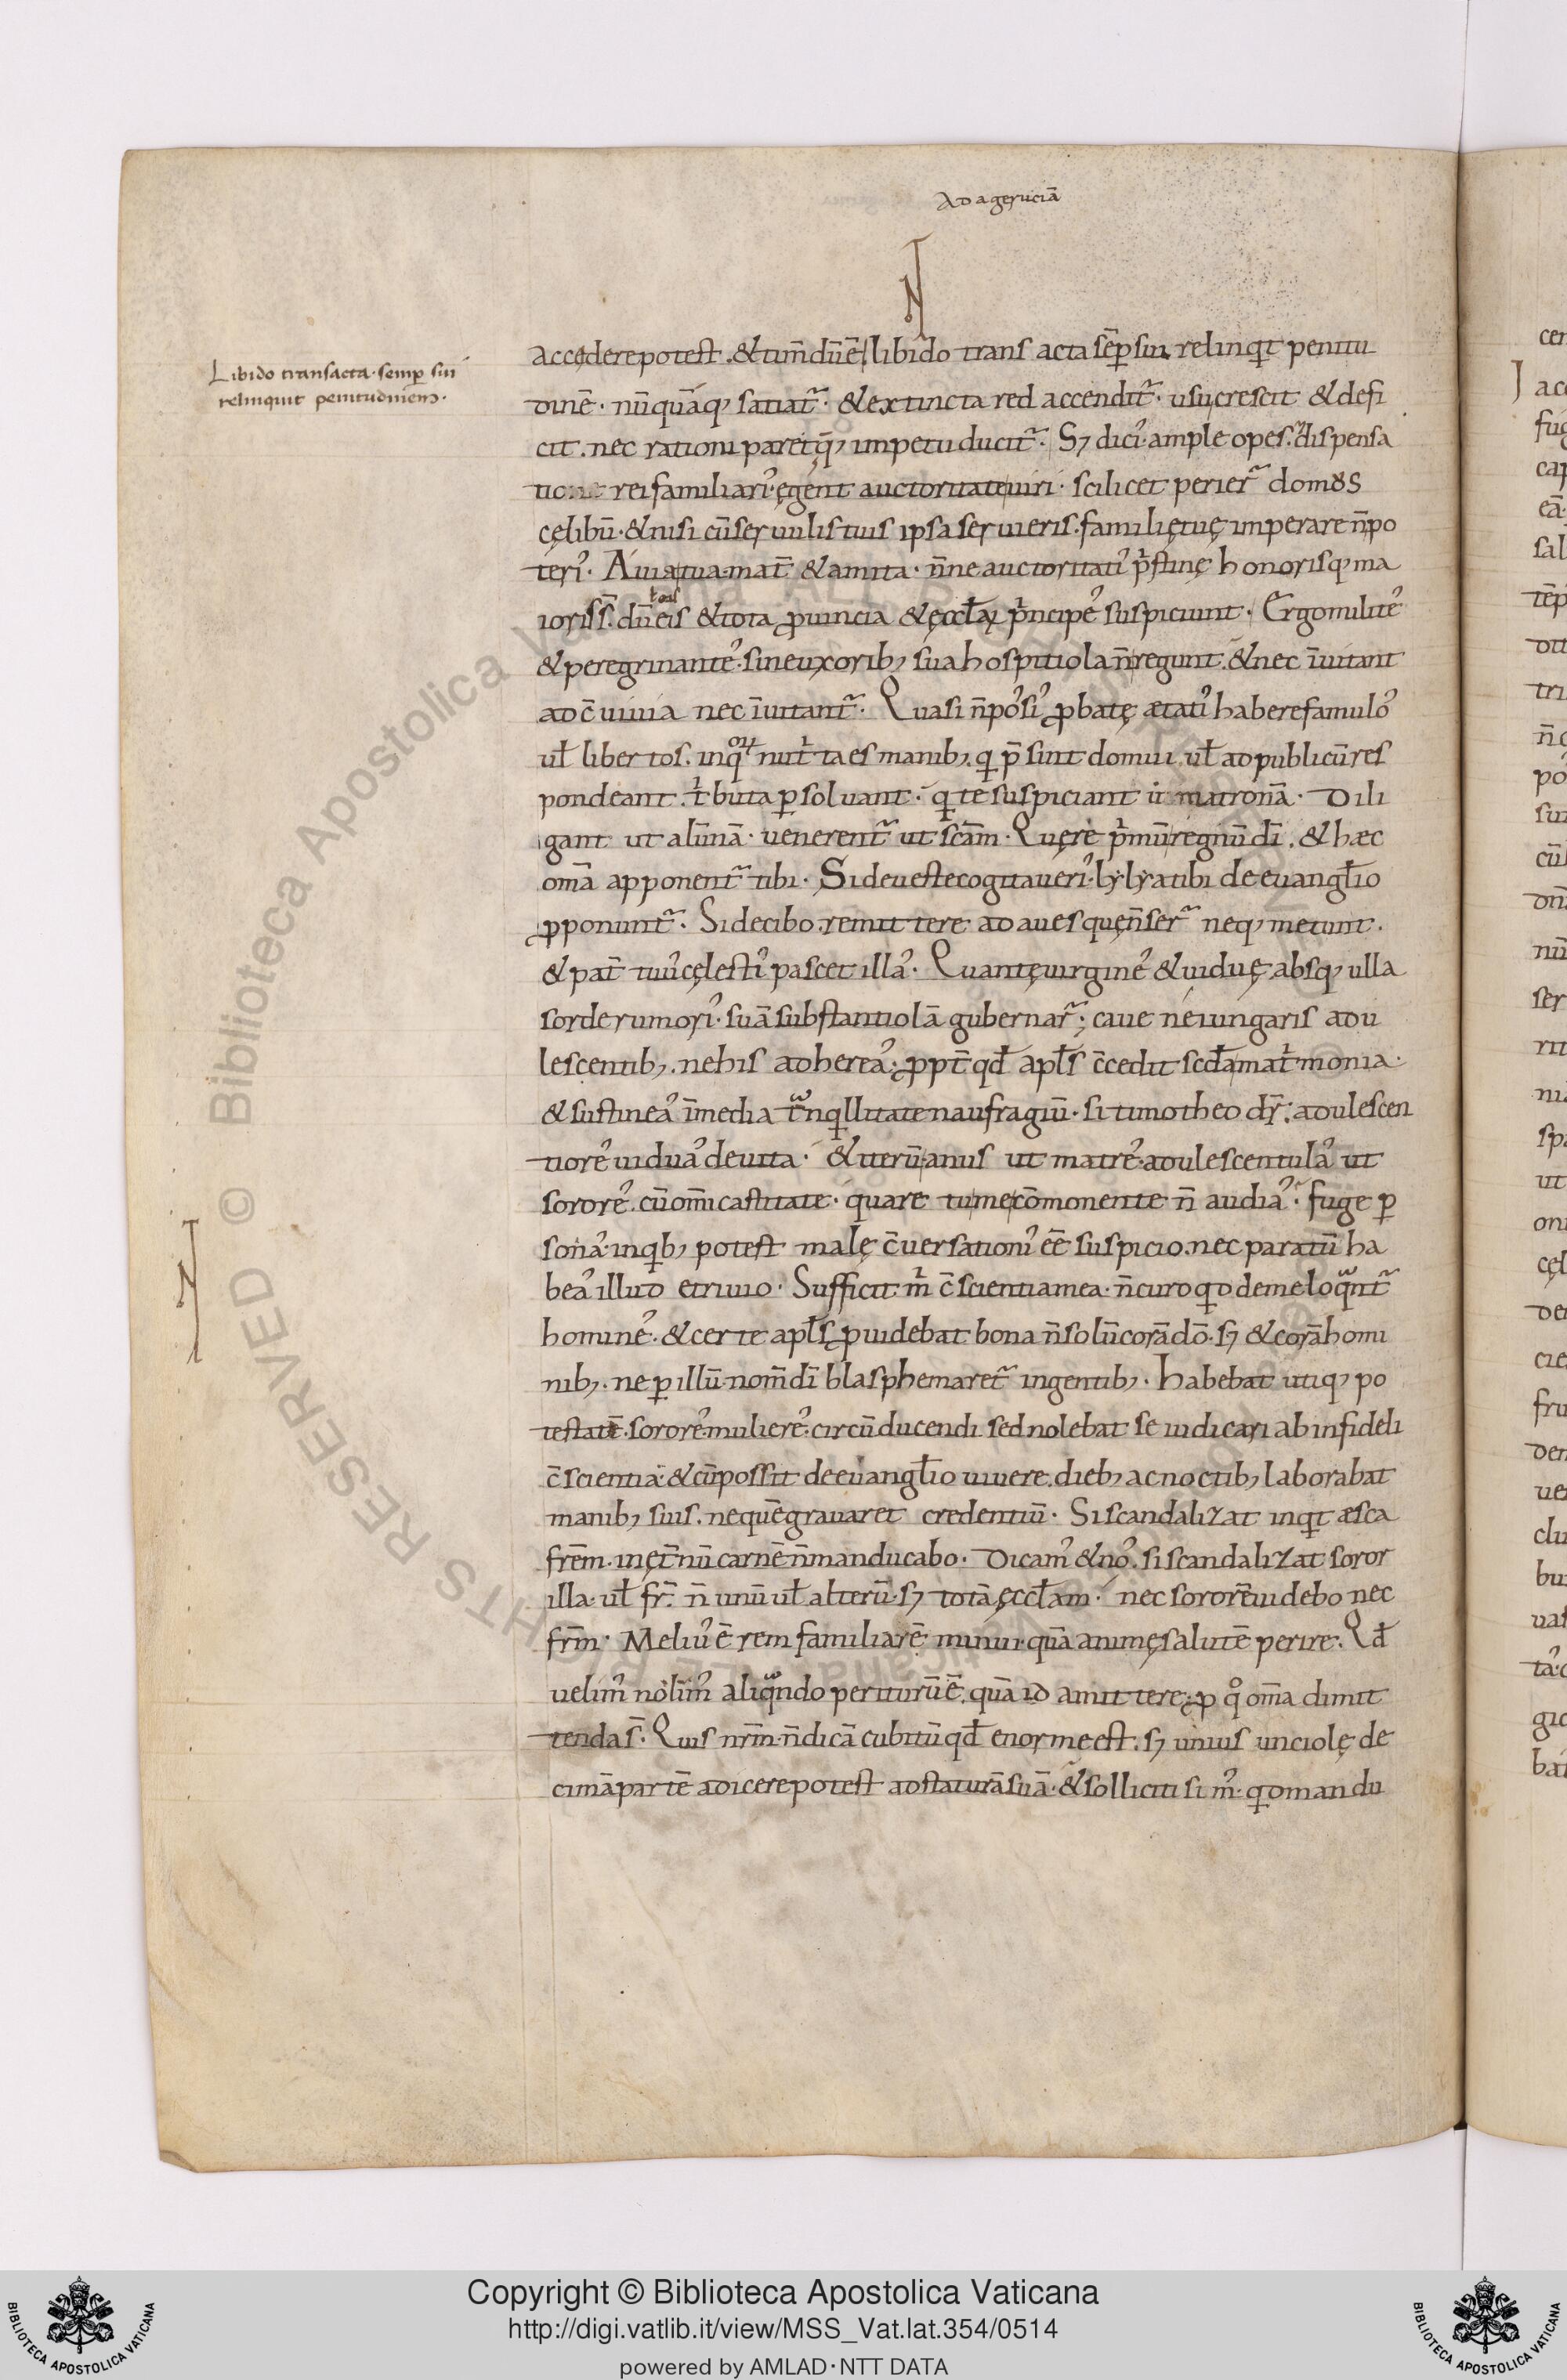 Ad agerucia᷃
Libido transacta · semp̱ sui
relinquit penitudinem ·
accęderepotest . &tim̅du̅e̅ libido trans acta se̅p̱ sui relinqꝉt penitu
dine̅ · nu̅qua̅qꝫ satiat᷑ · &extincta red accendit᷑ · usucrescit &defi
cit . nec rationi paret q̅ꝫ impetu ducit᷑ · Sꝫ diciꝰ ample opes . &dispensa
tione rei familiariꝰ · ęgent auctoritateuiri · scilicet perier᷑ domus
cęlibu̅ · &nisi cu̅ser uulis tuis ipsa ser uieris . familiętuę imperare n̅po
teriꝰ · Auia tua · mat̅ &amita · n̅ne auctoritatiꝰ p̍stinę honorisqꝫ ma
ioriss̅ · du̅ eis &tota ꝓuincia &ęccl̅aꝝ p̍ncipeꝰ suspiciunt · Ergomiliteꝰ
&peregrinanteꝰ · sineuxoribꝫ sua hospitiola n̅regunt . &nec i̅uitant
ad c̅uiuia nec i̅uitant᷑ · Quasi n̅poꝰsiꝰ ꝓbatę ætatiꝰ haberefamuloꝰ
ul̅ liber tos . inqͦꝝ nut̍ta es manibꝫ . qꝉ p̅ sint domui ul̅ ad publicu̅res
pondeant . t̍buta ꝑsoluant · qꝉ te suspiciant ut matrona̅ · Dili
gant ut alu̅na̅ · uenerent᷑ ut sc̅am · Quęre p̍mu̅regnu̅ di̅ . & hæc
om̅a apponent᷑ tibi · Sideuestecogitaueriꝰ · lẏlẏatibi de euangl̅io
ꝓponunt᷑ · Sidecibo . remittere ad aues quęn̅ser᷑ neqꝫ metunt .
&pat̅ tuuꝰcęlestiꝰ pascet illaꝰ · Quantęuirgineꝰ &uiduę absqꝫ ulla
sorderumoriꝰ · sua̅substantiola̅ gubernar᷑ ; caue neiungaris adu
lescentibꝫ . nehis adhereaꝰ ; ꝓpt̅ qd̅ apl̅s c̅cedit scd̅a mat̍monia ·
&sustineaꝰ i̅media t̅nqꝉllitate naufragiu̅ · si timotheo dr̅ : adulescen
tioreꝰ uiduaꝰ deuita · &iteru̅ anus ut matreꝰ · adulescentulaꝰ ut
sororeꝰ . cu̅om̅icastitate · quare tumeco̅monente n̅ audiaꝰ · fuge ꝑ
sonaꝰ · inqꝉbꝫ potest malę c̅uersationiꝰ ee̅ suspicio . nec paratu̅ ha
beaꝰ illud etriuio · Sufficit m̍ c̅scientiamea · n̅curo qꝉd demeloqͣnt᷑
homineꝰ . &certe apl̅s ꝓuidebat bona n̅solu̅cora̅do̅ · sꝫ &cora̅homi
nibꝫ . ne ꝑ illu̅ nom̅di̅ blasphemaret᷑ ingentibꝫ · habebat utiqꝫ po
testate̅ · sororeꝰ · muliereꝰ · circu̅ducendi sed nolebat se iudicari ab infideli
c̅scientia : &cu̅possit deeuangl̅io uiuere . diebꝫ ac noctibꝫ laborabat
manibꝫ suis . neque̅gravaret credentiu̅ · Siscandalizat inqꝉt æsca
fre̅m . inęt̅nu̅ carne̅ n̅manducabo · Dicamꝰ &noꝰ . si scandalizat soror
illa · ul̅ fr̅ . n̅ unu̅ ul̅ alteru̅ · sꝫ tota̅ ęccl̅am · nec sorore̅uidebo nec
frm̅ · Meliuꝰ e̅ rem familiare̅ minui · qua̅ animęsalute̅ perire . Qd̅
uelimꝰ nolimꝰ aliqͣndo periturū e̅ . qua̅ id amittere ; ꝓ qͦ om̅a dimit
tenda s̅ · Quis nrm̅ · n̅dica̅ cubitu̅ qd̅ enorme est . sꝫ unius unciolę de
cima̅parte̅ adicere potest adstatura̅sua̅ · &solliciti simꝰ · qꝉdmandu